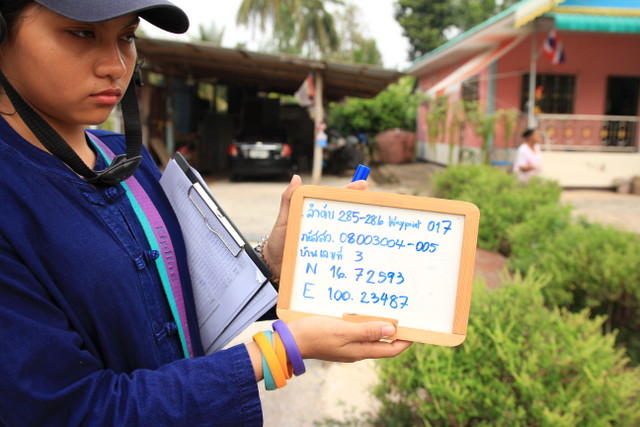 ลำดับ 285-286 Waypoint 017
รหัสสว. 08003004-005
บ้านเลขที่ 3
N 16.72593
E 100.23487